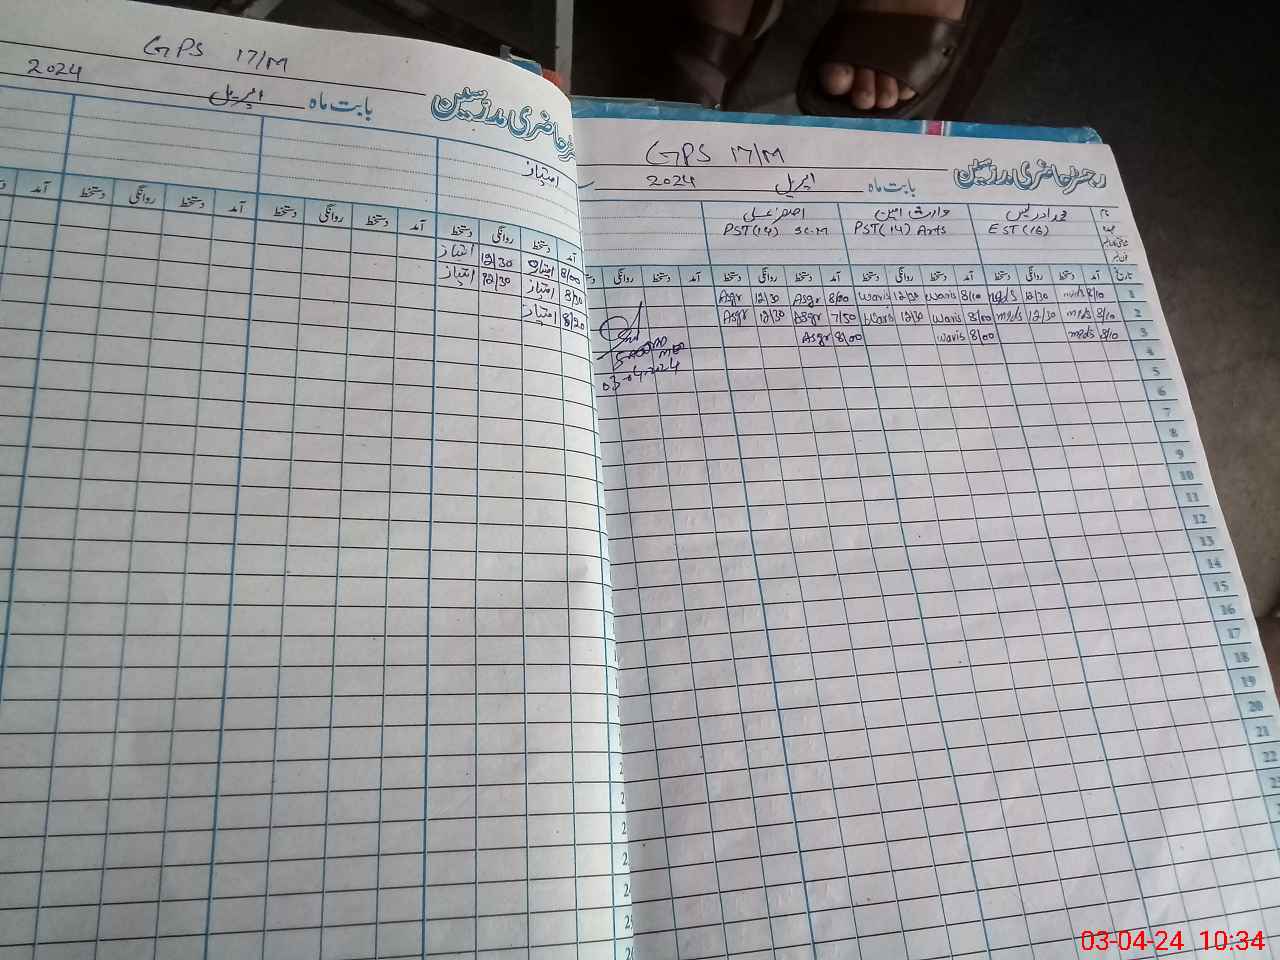 GPS 17/M
رجسٹر حاضری مدرسین
بابت ماہ اپریل 2024
نام محمد ادریس وارث امین اصغر علی
عہدہ EST (16) PST (14) Arts PST (14) Sc.M
تاریخ آمد دستخط روانگی دستخط آمد دستخط روانگی دستخط آمد دستخط روانگی دستخط آمد دستخط روانگی دستخط
1 8/10 12/30 8/10 Waris 12/30 Waris 8/00 Asgr 12/30 Asgr
2 8/10 12/30 8/00 Waris 12/30 Waris 7/50 Asgr 12/30 Asgr
3 8/10 8/00 Waris 8/00 Asgr
4
5
6
7
8
9
10
11
12
13
14
15
16
17
18
19
20
21
22
03-04-2024
GPS 17/M
رجسٹر حاضری مدرسین
بابت ماہ اپریل 2024
امتیاز
آمد دستخط روانگی دستخط آمد دستخط روانگی دستخط آمد دستخط روانگی دستخط آمد
8/00 امتیاز 12/30 امتیاز
8/30 امتیاز 12/30 امتیاز
8/20 امتیاز
03-04-24 10:34